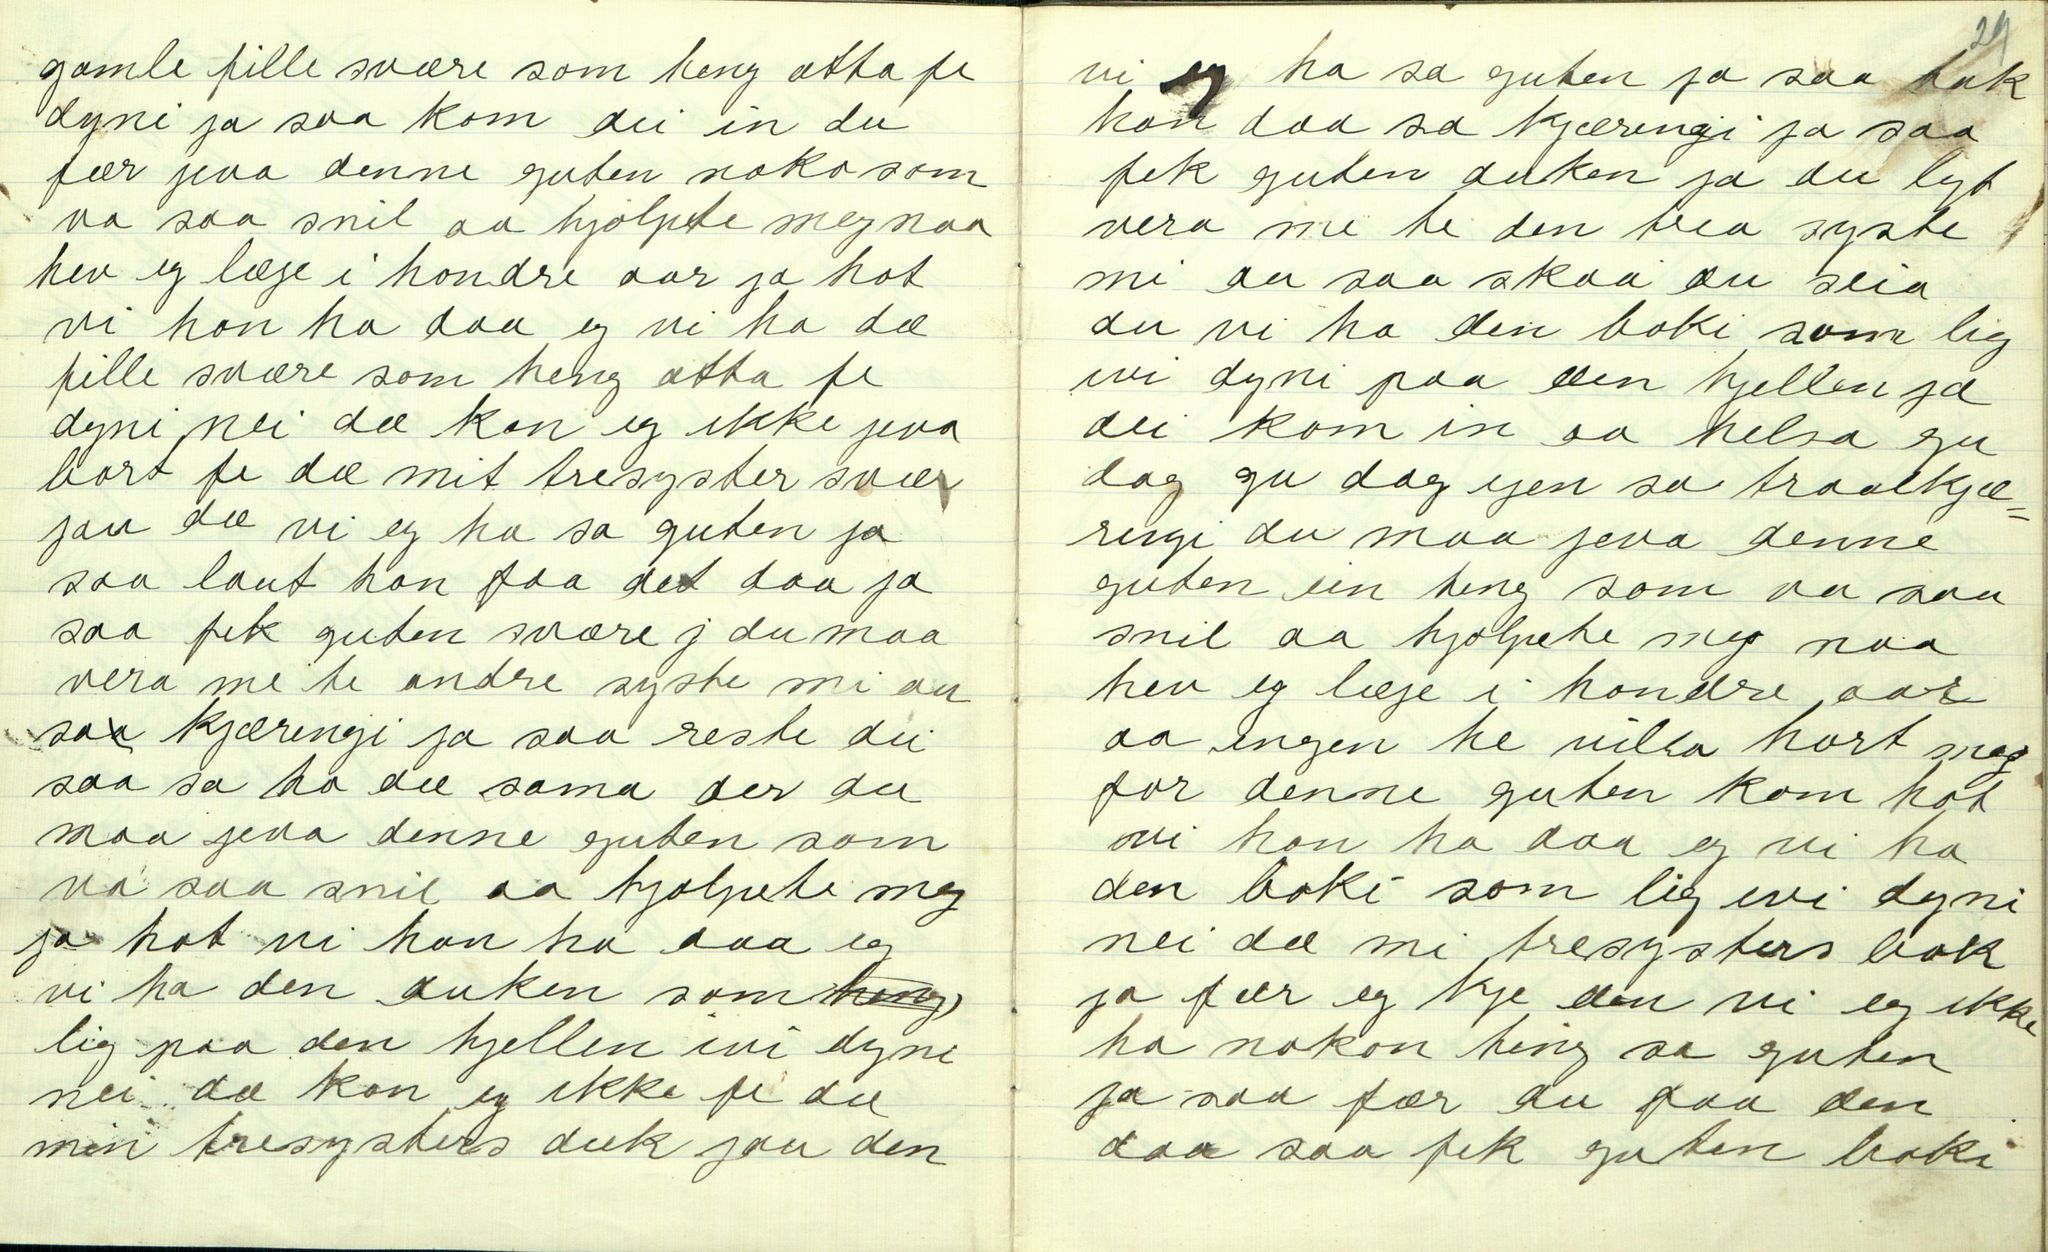 gamle fille svære som heng atta fe
dyni ja saa kom dei in du
fær jeva denne guten noko som
va saa snil aa hjølpete meg naa
hev eg læje i hondre aar ja hot
vi hon ha daa eg vi ha dæ
fille svære som heng atta fe
dyni nei dæ kan eg ikke jeva
bort fe dæ mit tresyster svær
jau dæ vi eg ha sa guten ja
saa laut han faa det daa ja
saa fek guten svære j du maa
vera me te andre syste mi au
saa kjæringi ja saa reste dei
saa sa ho dæ sama der du
maa jeva denne guten som
va saa snil aa hjolpete meg
ja hot vi han ha daa eg
vi ha den duken som heng
lig paa den hjellen ivi dyni
nei dæ kan eg ikke fe dæ
min tresysters duk jau den
29
vi eg ha sa guten ja saa tak
han daa sa kjæringi ja saa
fek guten duken ja du lyt
vera me te den trea syste
mi au saa skaa du seia
du vi ha den boki som lig
ivi dyni paa den hjellen ja
dei kom in aa helsa gu
dag gu dag igen sa traalkjæ=
ringi du maa jeva denne
guten ein ting som va saa
snil aa hjolpete meg naa
hev eg læje i hondre aar
aa ingen he villa hort meg
for denne guten kom hot
vi han ha daa eg vi ha
den boki som lig ivi dyni
nei dæ mi tresysters bok
ja fær eg kje den vi eg ikke
ha nokon ting sa guten
ja saa fær du faa den
daa saa fek guten boki